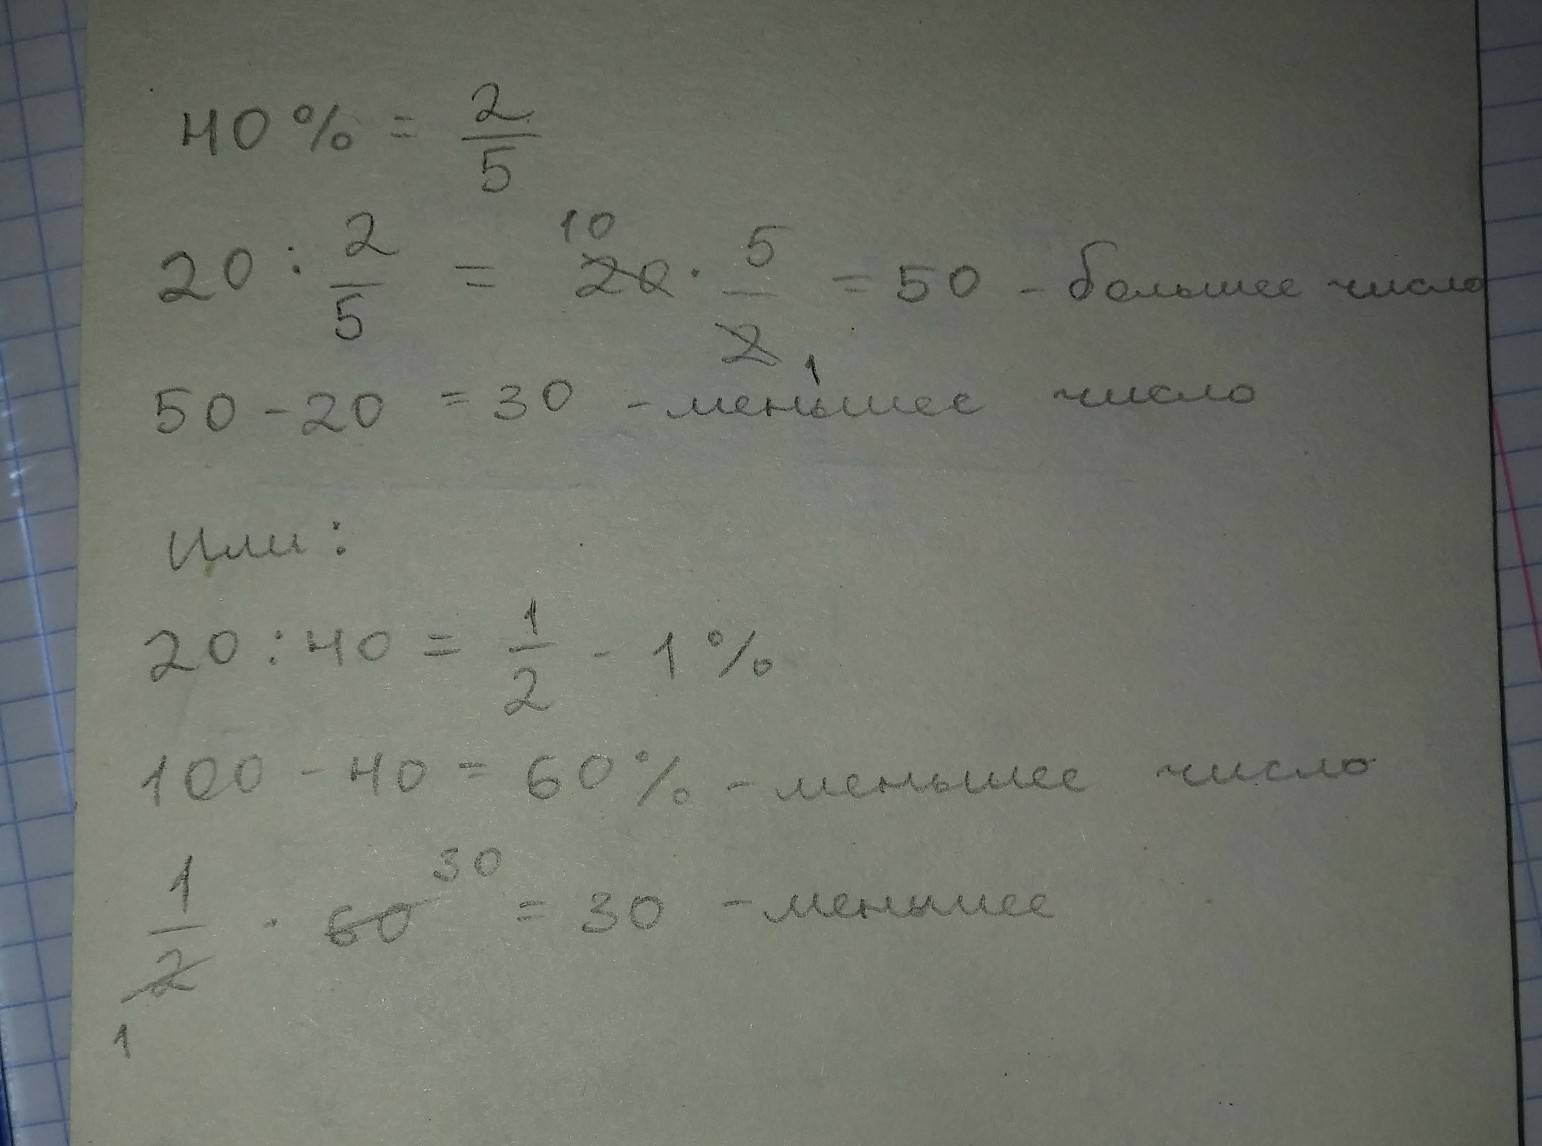 40% = 2/5
20 : 2/5 = 20 10 · 5/2 1 = 50 - большее число
50 - 20 = 30 - меньшее число
Или:
20 : 40 = 1/2 - 1%
100 - 40 = 60% - меньшее число
1/2 1 · 60 30 = 30 - меньшее